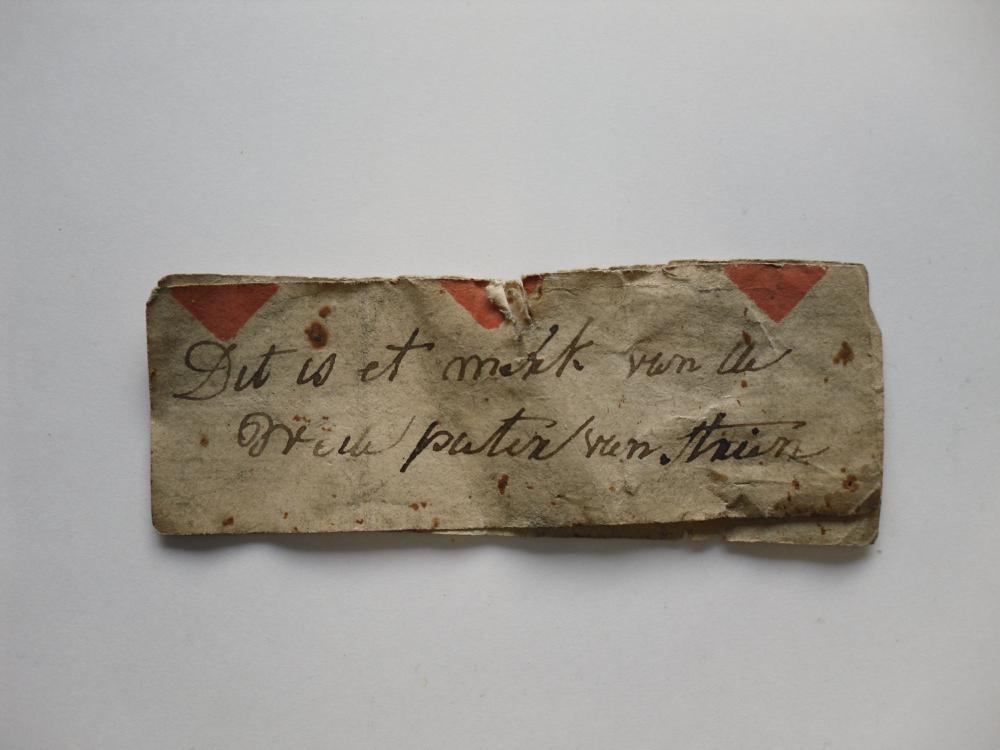 Dit is et merk van de
Wede pater van Struin